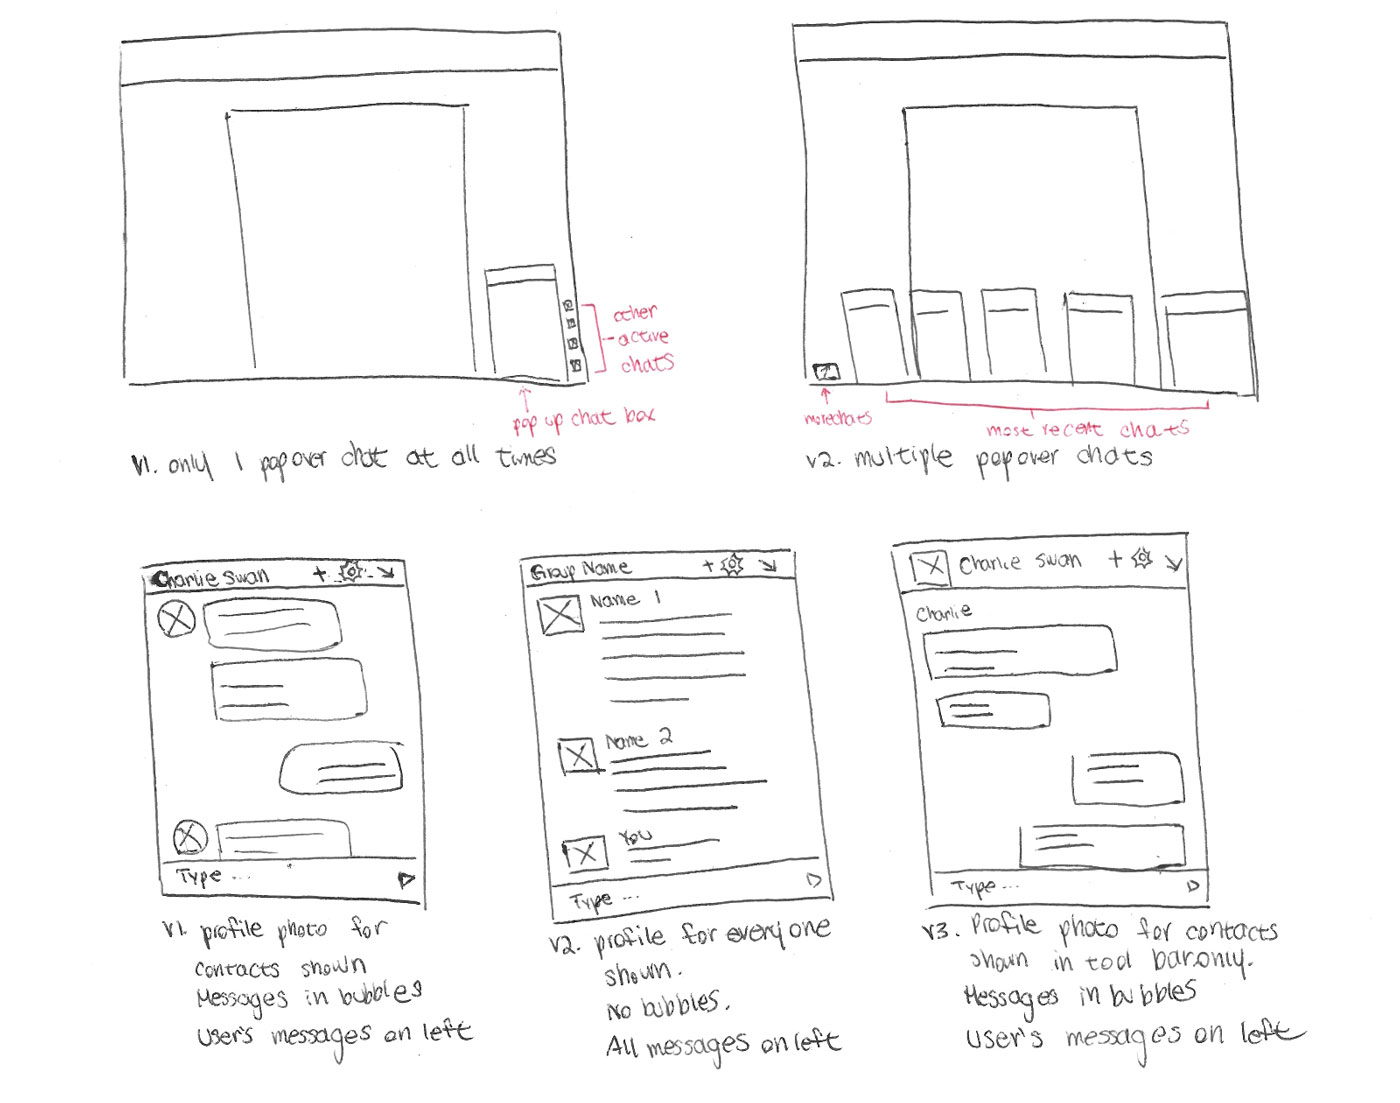 other
active
chats
pop up chat box
V1. only 1 popover chat at all times
more chats
most recent chats
v2. multiple popover chats
Charlie Swan +
Type ...
v1. profile photo for
contacts shown
Messages in bubbles
User's messages on left
Group Name +
Name 1
Name 2
You
Type ...
v2. profile for everyone
shown.
No bubbles.
All messages on left
Charlie Swan +
Charlie
Type ...
v3. Profile photo for contacts
shown in tool bar only.
Messages in bubbles
User's messages on left